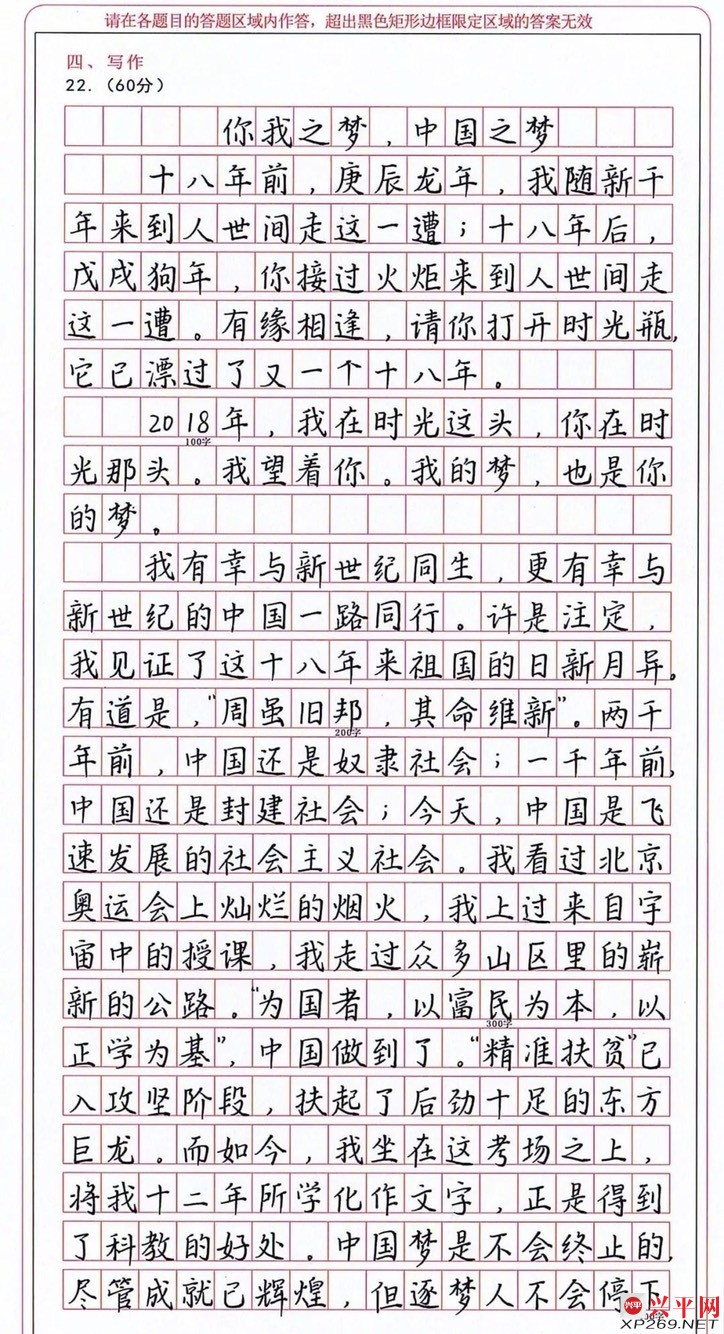 请在各题目的答题区域内作答，超出黑色矩形边框限定区域的答案无效
四、写作
22.（60分）
你我之梦，中国之梦
十八年前，庚辰龙年，我随新千
年来到人世间走这一遭；十八年后，
戊戌狗年，你接过火炬来到人世间走
这一遭。有缘相逢，请你打开时光瓶，
它已漂过了又一个十八年。
2018年，我在时光这头，你在时
100字
光那头。我望着你。我的梦，也是你
的梦。
我有幸与新世纪同生，更有幸与
新世纪的中国一路同行。许是注定，
我见证了这十八年来祖国的日新月异。
有道是，“周虽旧邦，其命维新”。两千
200字
年前，中国还是奴隶社会；一千年前，
中国还是封建社会；今天，中国是飞
速发展的社会主义社会。我看过北京
奥运会上灿烂的烟火，我上过来自宇
宙中的授课，我走过众多山区里的崭
新的公路。“为国者，以富民为本，以
300字
正学为基”，中国做到了。“精准扶贫”已
入攻坚阶段，扶起了后劲十足的东方
巨龙。而如今，我坐在这考场之上，
将我十二年所学化作文字，正是得到
了科教的好处。中国梦是不会终止的，
尽管成就已辉煌，但逐梦人不会停下
兴平 兴平网
XP269.NET